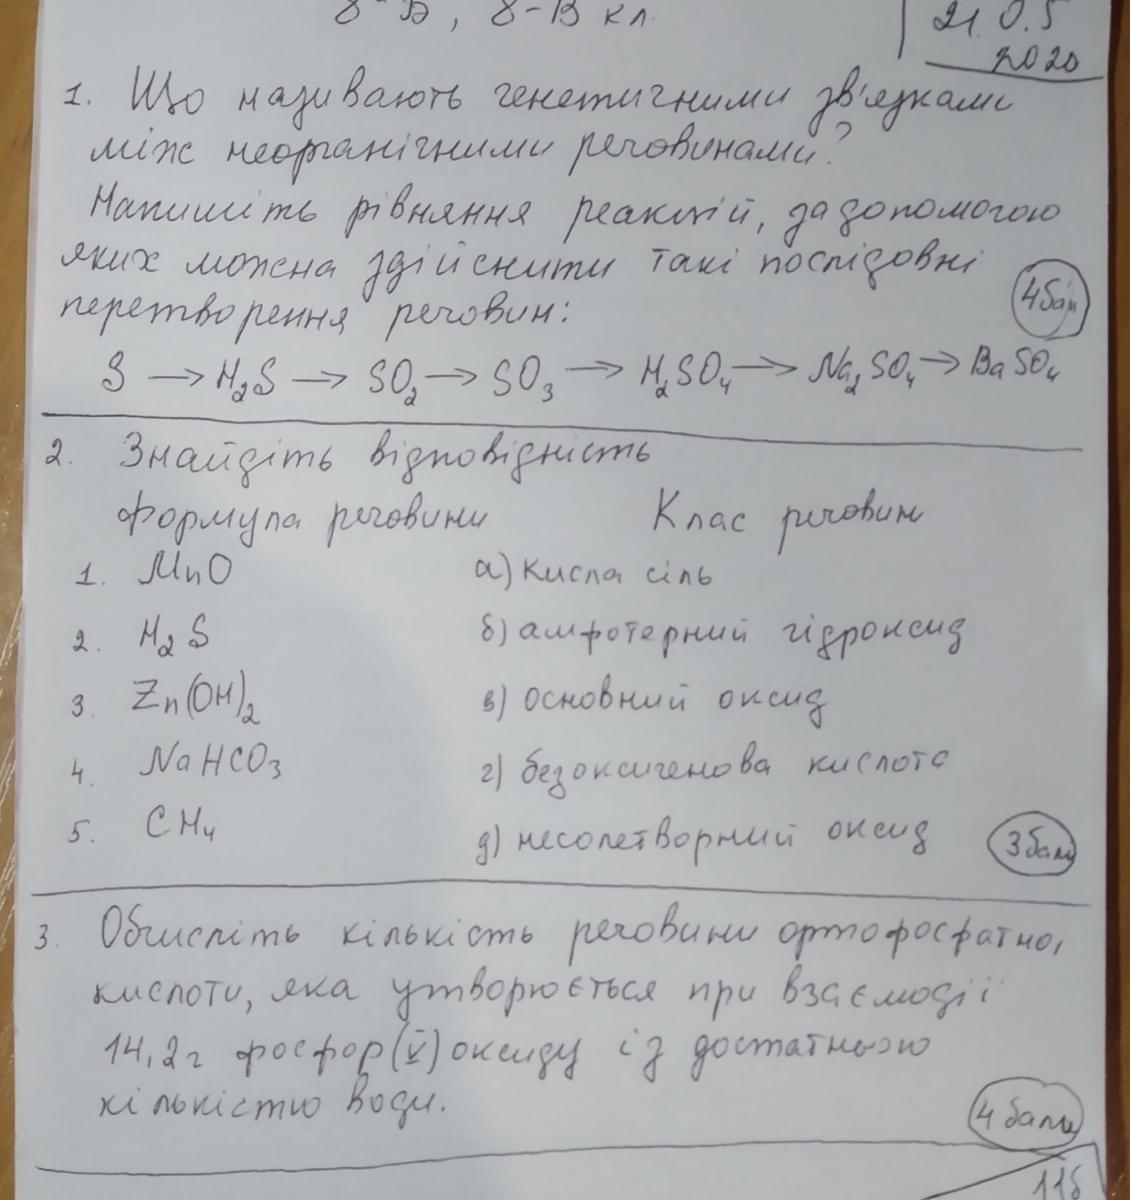 8-Б, 8-В кл.
21.05
2020
1. Що називають генетичними зв'язками
між неорганічними речовинами?
Напишіть рівняння реакцій, за допомогою
яких можна здійснити такі послідовні
перетворення речовин:
4бали
S → H₂S → SO₂ → SO₃ → H₂SO₄ → Na₂SO₄ → BaSO₄
2. Знайдіть відповідність
Формула речовини Клас речовин
1. MnO а) кисла сіль
2. H₂S б) амфотерний гідроксид
3. Zn(OH)₂ в) основний оксид
4. NaHCO₃ г) безоксигенова кислота
5. CH₄ д) несолетворний оксид
3бали
3. Обчисліть кількість речовини ортофосфатної
кислоти, яка утворюється при взаємодії
14,2г фосфор(V) оксиду із достатньою
кількістю води.
4 бали
11б